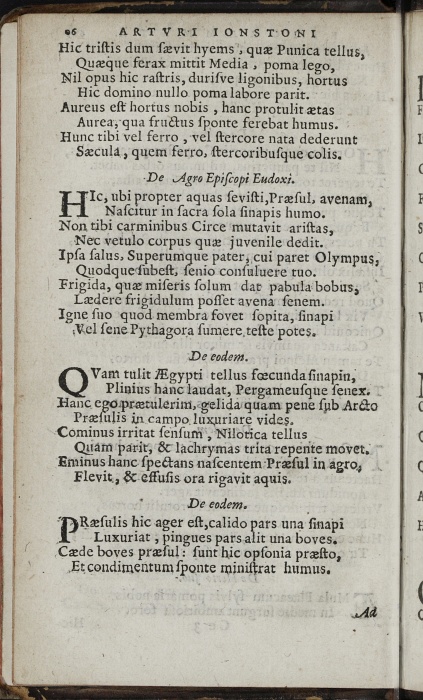 06 ARTVRI IONSTONI
Hic triſtis dum ſævit hyems, quæ Punica tellus,
Quæque ferax mittit Media, poma lego,
Nil opus hic raſtris, duriſve ligonibus, hortus
Hic domino nullo poma labore parit.
Aureus eſt hortus nobis, hanc protulit ætas
Aurea, qua fructus ſponte ferebat humus.
Hunc tibi vel ferro, vel ſtercore nata dederunt
Sæcula, quem ferro, ſtercoribuſque colis.
De Agro Epiſcopi Eudoxi.
HIc, ubi propter aquas ſeviſti, Præſul, avenam,
Naſcitur in ſacra ſola ſinapis humo.
Non tibi carminibus Circe mutavit ariſtas,
Nec vetulo corpus quæ juvenile dedit.
Ipſa ſalus, Superumque pater, cui paret Olympus,
Quodque ſubeſt, ſenio conſuluere tuo.
Frigida, quæ miſeris ſolum dat pabula bobus,
Lædere frigidulum poſſet avena ſenem.
Igne ſuo quod membra fovet ſopita, ſinapi
Vel ſene Pythagora ſumere, teſte potes.
De eodem.
QVam tulit Ægypti tellus fœcunda ſinapin,
Plinius hanc laudat, Pergameuſque ſenex.
Hanc ego prætulerim, gelida quam pene ſub Arcto
Præſulis in campo luxuriare vides.
Cominus irritat ſenſum, Nilotica tellus
Quam parit, & lachrymas trita repente movet.
Eminus hanc ſpectans naſcentem Præſul in agro,
Flevit, & effuſis ora rigavit aquis.
De eodem.
PRæſulis hic ager eſt, calido pars una ſinapi
Luxuriat, pingues pars alit una boves.
Cæde boves præſul: ſunt hic opſonia præſto,
Et condimentum ſponte miniſtrat humus.
Ad